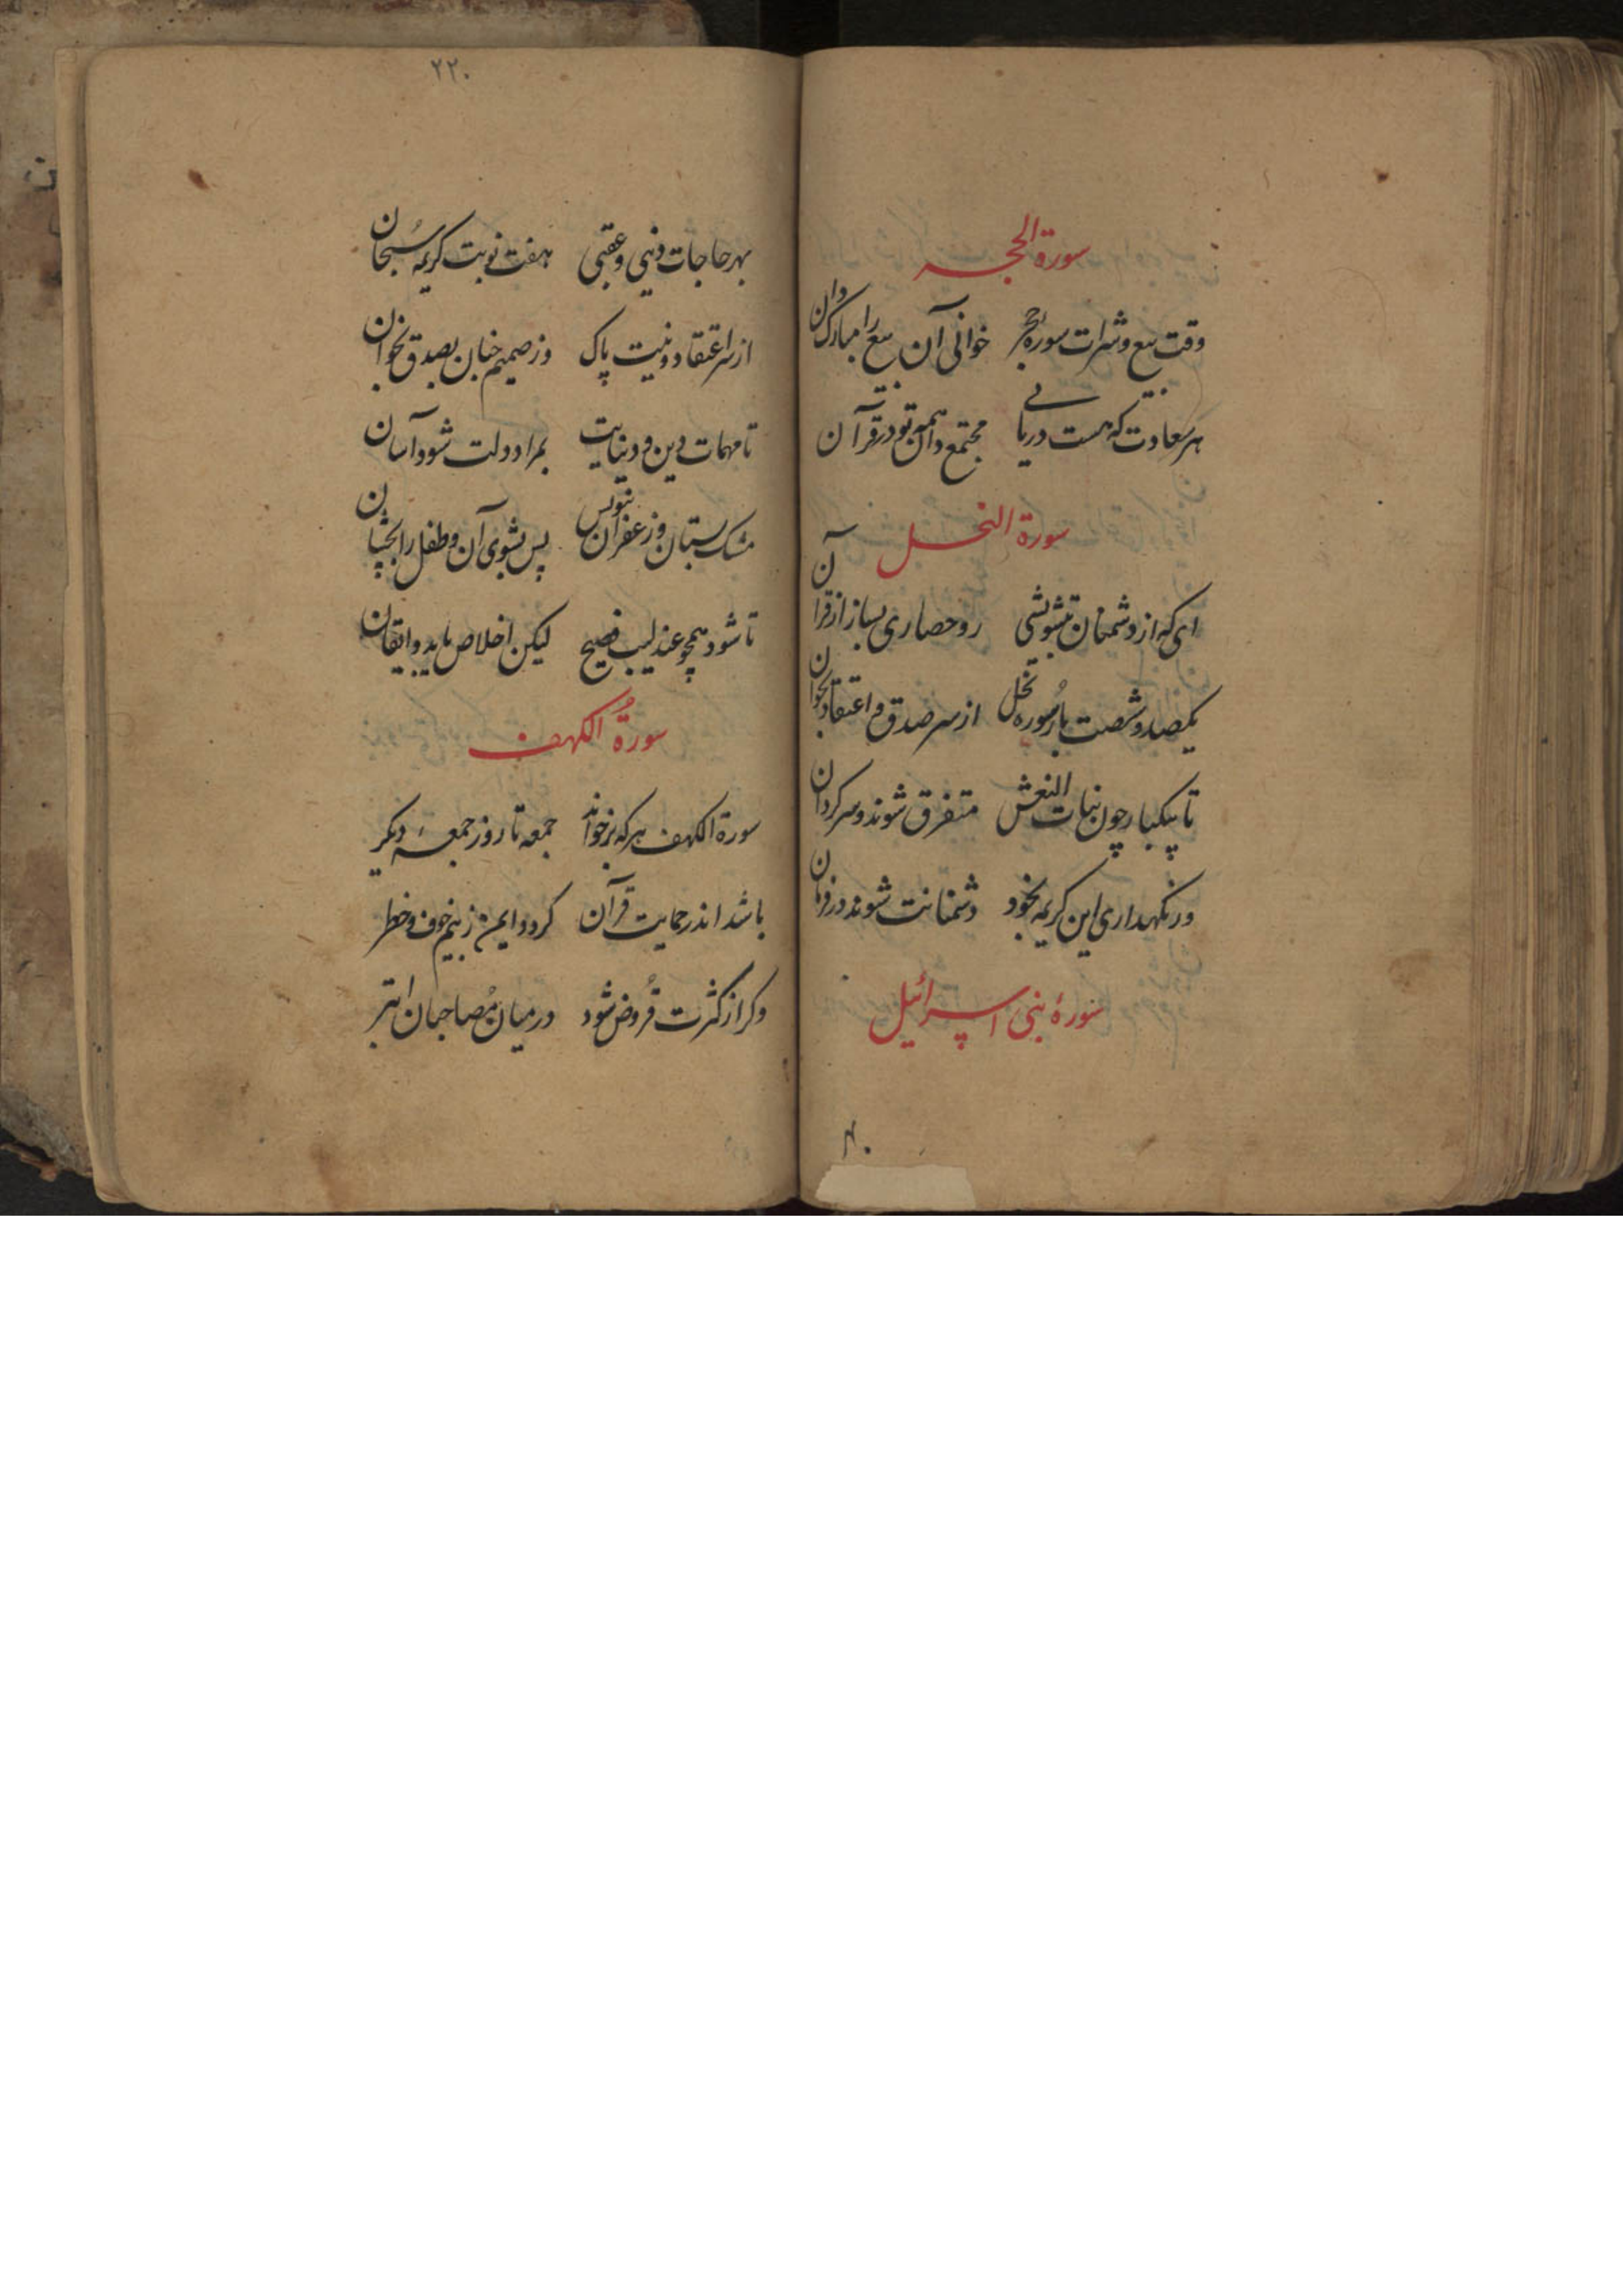 سورة الحجر
وقت بیع و شرات سورهٔ حجر خوانی آن بیع را مبارک دان
هر سعادت که هست دریابی مجتمع دان همه تو در قرآن
سورة النحل
ای که از دشمنان بتشویشی رو حصاری بساز از قرآن
یکصد و شصت بار سوره نحل از سر صدق و اعتقاد بخوان
تا بیکبار چون بنات النعش متفرق شوند و سرکردان
ور نکهداری این کریمه بخود دشمنانت شوند در فرمان
سورهٔ بنی اسرائیل
۲۲۰
بهر حاجات دینی و عقبی هفت نوبت کریمه سبحان
از سر اعتقاد و نیت پاک وز صمیم جنان بصدق بخوان
تا مهمات دین و دنیایت بمراد دلت شود آسان
مشک بستان و زعفران بنویس پس بشوی آن و طفل را بچشان
تا شود همچو عندلیب فصیح لیکن اخلاص باید و ایقان
سورة الکهف
سورة الکهف هر که برخواند جمعه تا روز جمعهٔ دیکر
باشد اندر حمایت قرآن کردد ایمن ز بیم خوف و خطر
وکر از کثرت قروض شود در میان مصاحبان ابتر